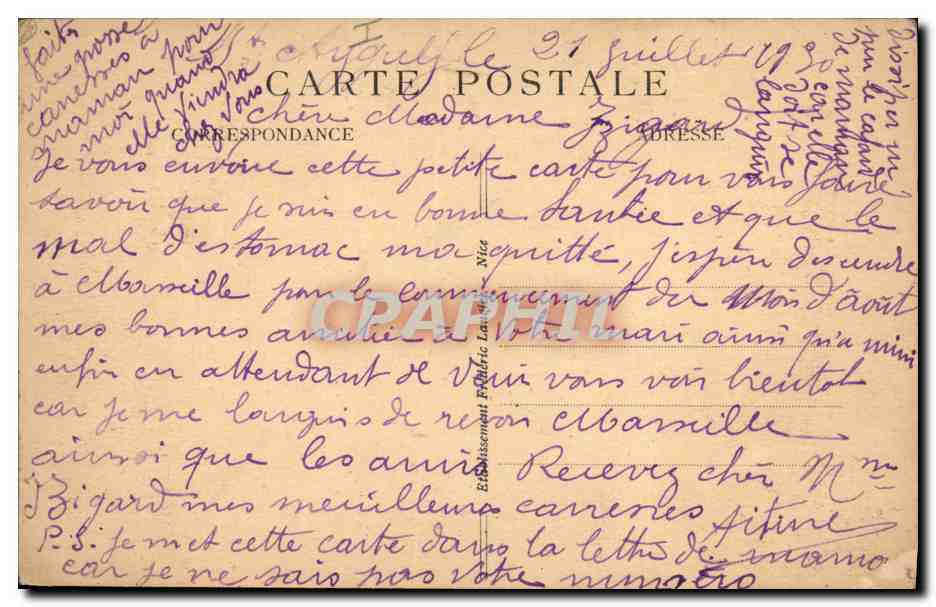 le 21 juillet 1930
CARTE POSTALE
Chère Madame Bigard
CORRESPONDANCE
ADRESSE
Je vous envoie cette petite carte pour vous faire
savoir que je suis en bonne santée et que le
mal d'estomac ma quitté, j'espère descendre
à Marseille pour le commencement du Mois d'août
mes bonnes amitié à Votre mari ainsi qu'a mimi
enfin en attendant de Venir vous voir bientot
car je me languis de revoir Marseille
ainsi que les amis Recevez chèr Mme
Bigard mes meilleures carresses Titine
P.S. Je met cette carte dans la lettre de mamo
car je ne sais pas votre numéro
faites
une grosse
caresses à
maman pour
moi quand
elle Viendra
chez vous
Dissiper un
peu le cafard
de maman
car elle
doit se
languir
Etablissement Frédéric Laugier, Nice
CPAPHIL